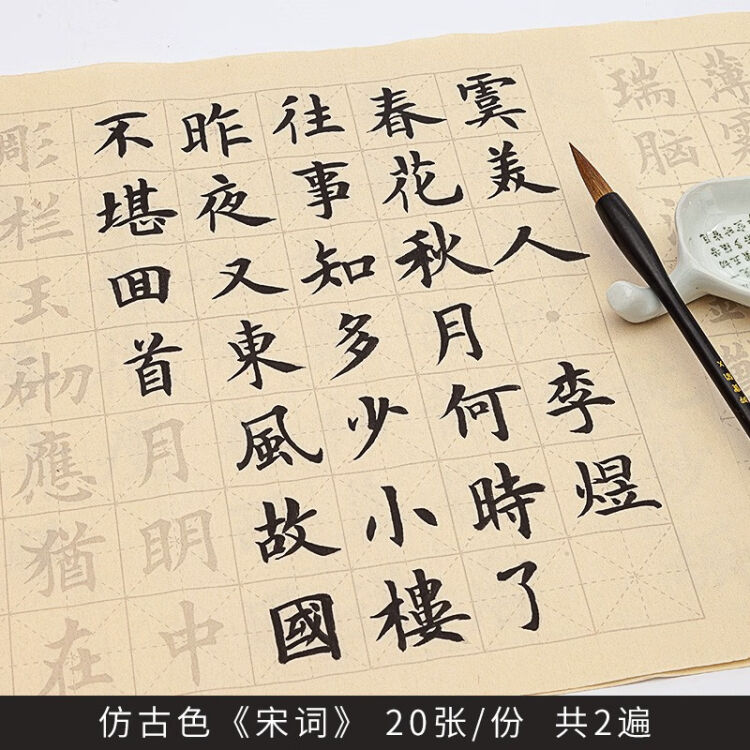 虞美人 李煜
春花秋月何時了
往事知多少小樓
昨夜又東風故國
不堪回首月明中
彫栏玉砌應猶在
薄
瑞脑
仿古色《宋词》 20张/份 共2遍